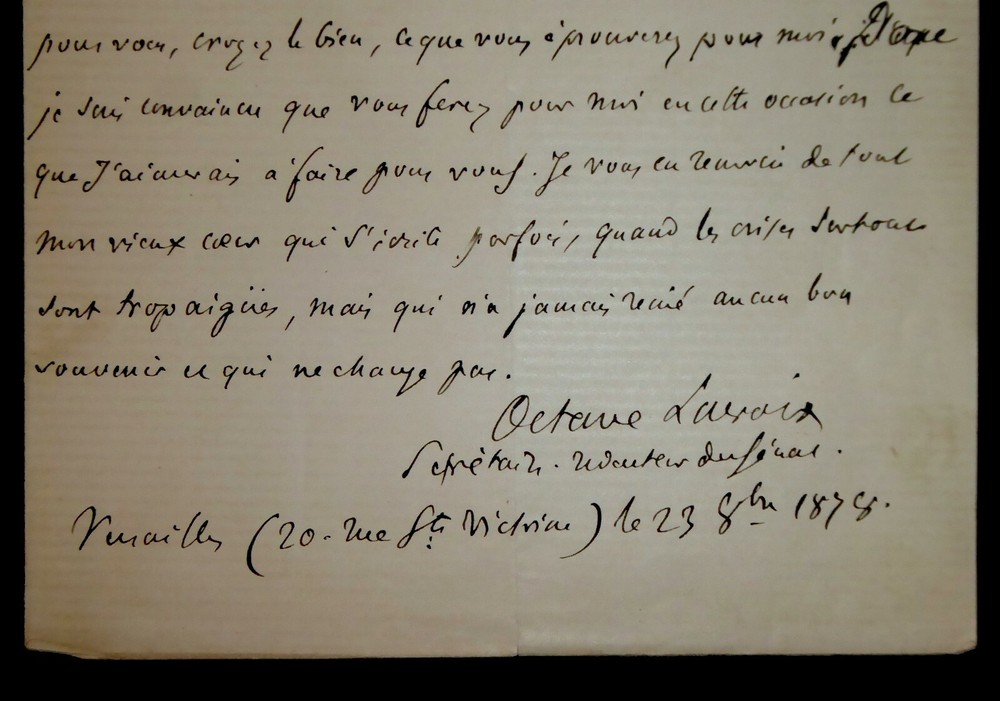 pour vous, croyez le bien, ce que vous éprouverez pour moi; Donc
je suis convaincu que vous ferez pour moi en cette occasion ce
que J'aimerais à faire pour vous. Je vous en remercie de tout
mon vieux cœur qui s'irrite parfois, quand les crises surtout
sont trop aigües, mais qui n'a jamais renié aucun bon
souvenir et qui ne change pas.
Octave Lacroix
Secrétaire-rédacteur du Sénat.
Versailles (20-rue Ste Victoire) le 23 8bre 1878.